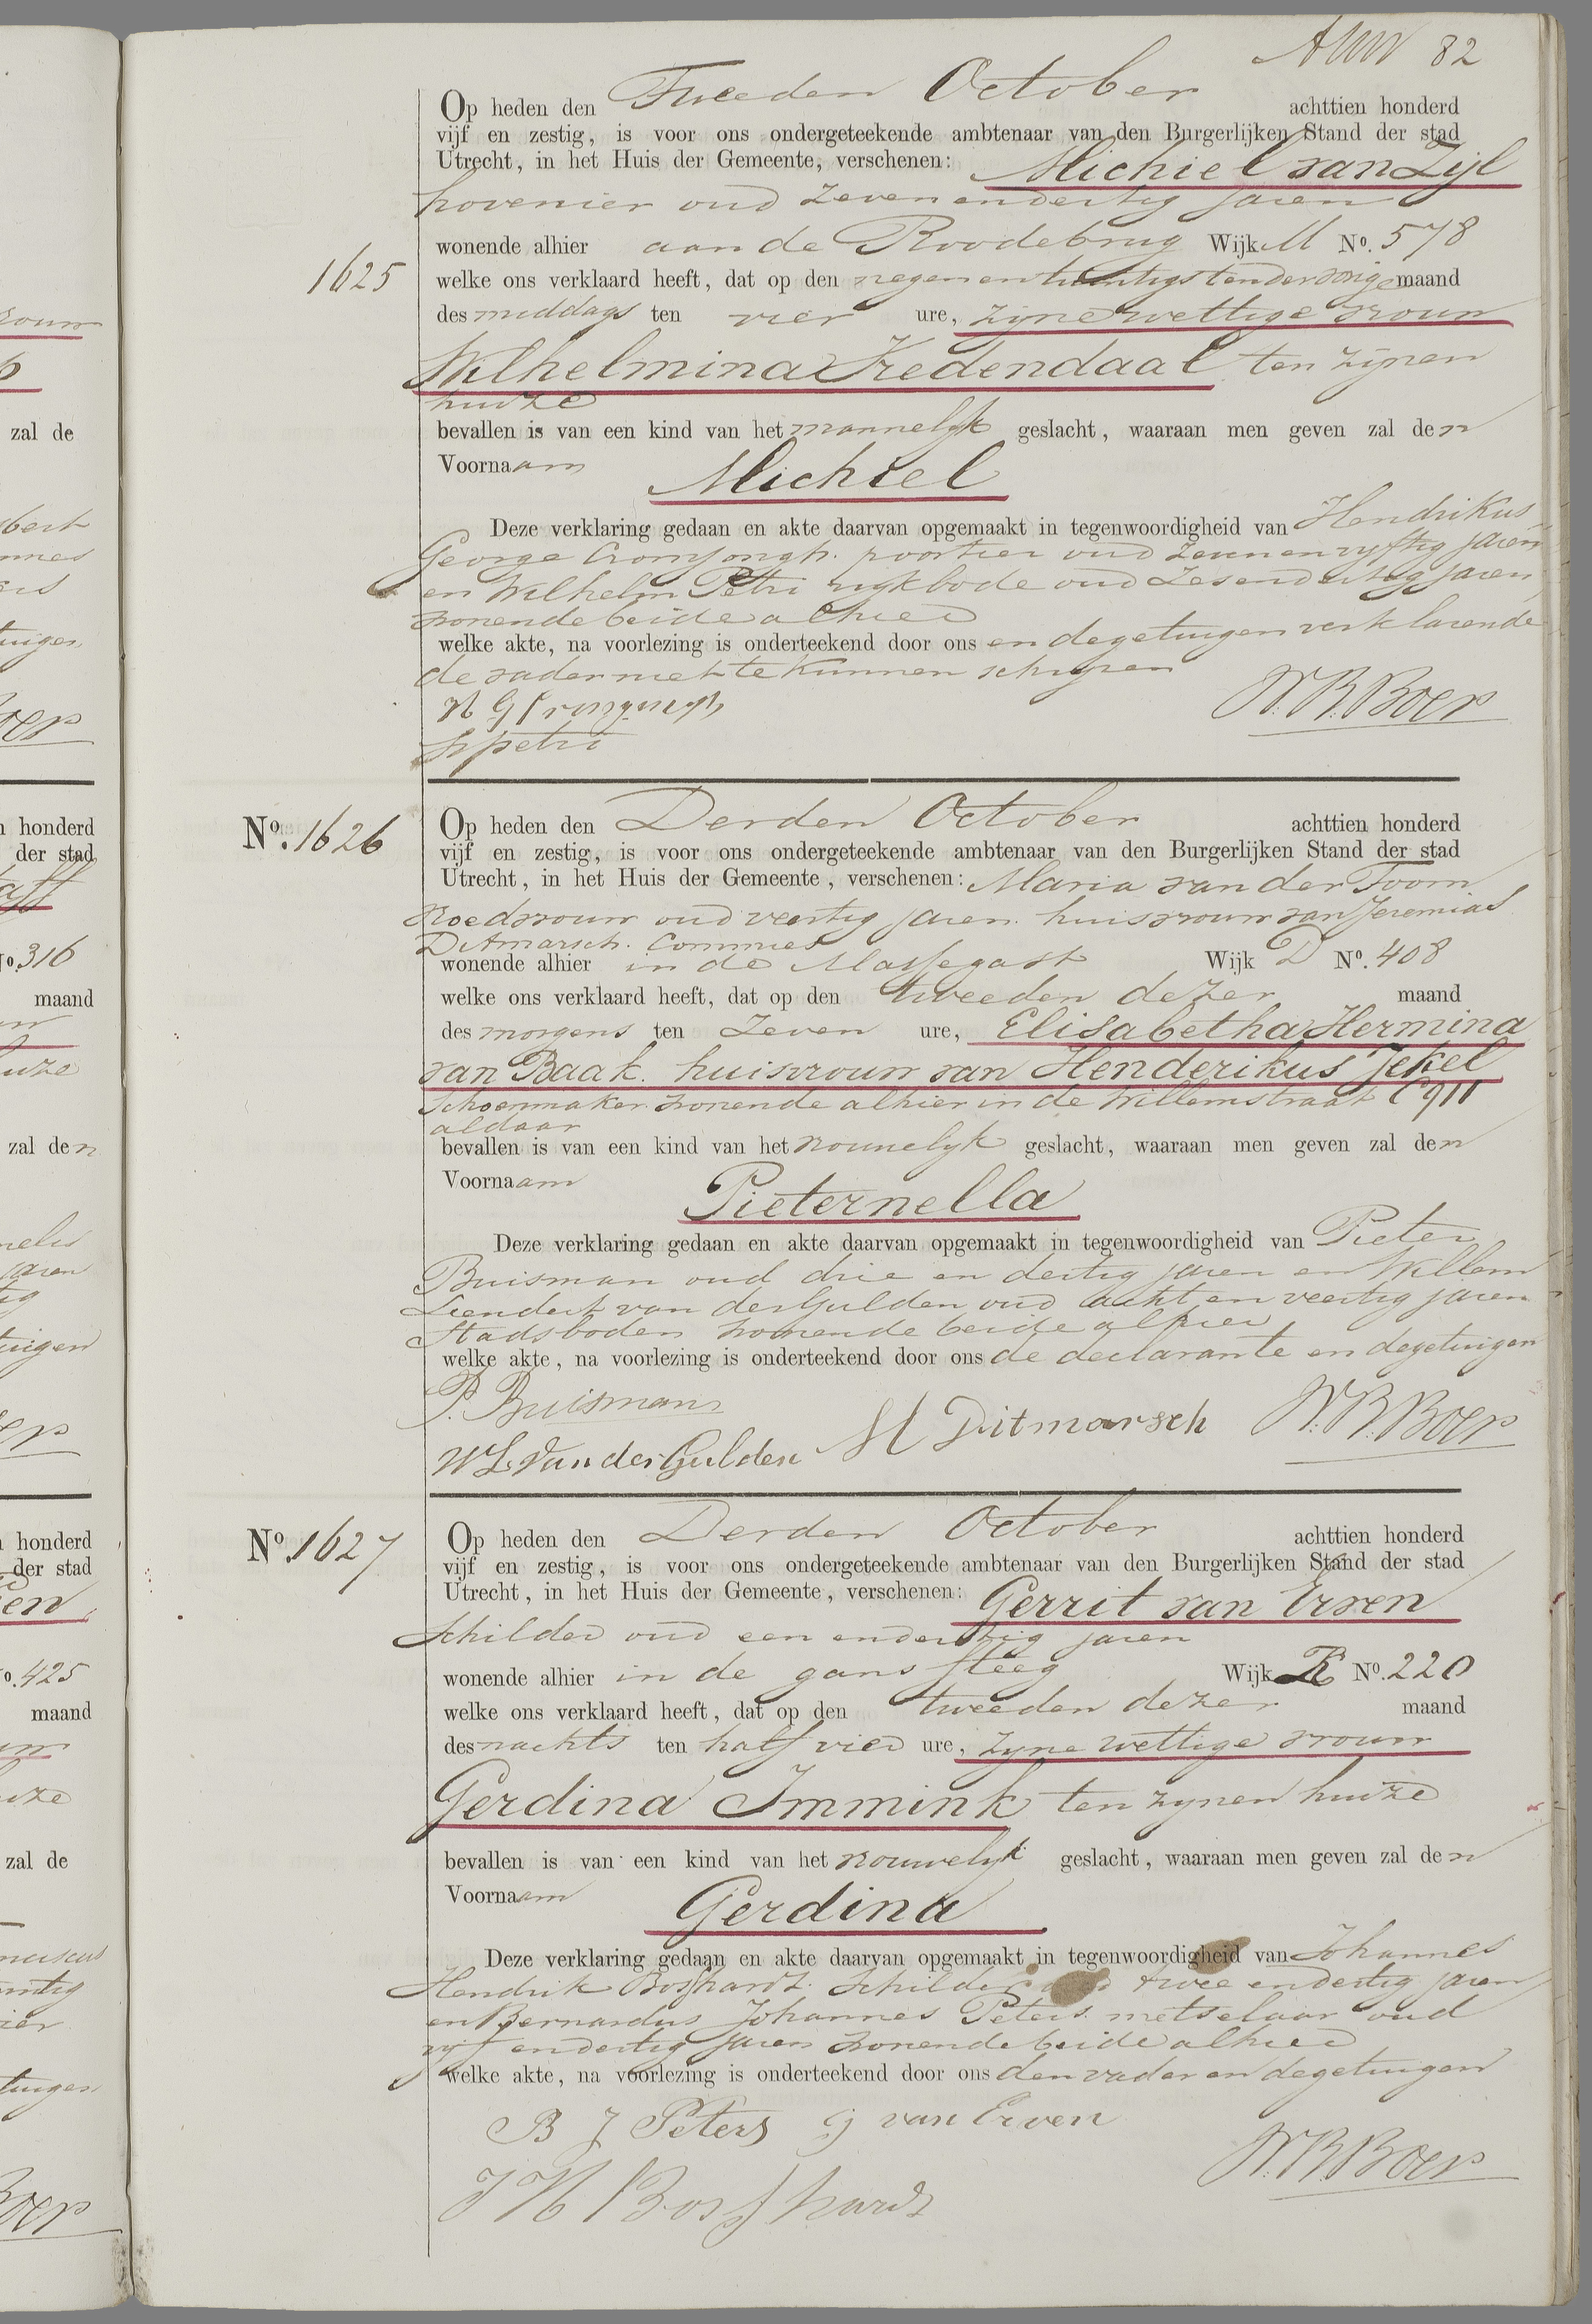 82
Op heden den Tweeden October achttien honderd
vijf en zestig, is voor ons ondergeteekende ambtenaar van den Burgerlijken Stand der stad
Utrecht, in het Huis der Gemeente, verschenen: Michiel van Zijl
hovenier oud zevenendertig jaren
wonende alhier aan de Roodebrug Wijk M No. 578
1625
welke ons verklaard heeft, dat op den negenentwintigsten der vorige maand
des middags ten vier ure, zijne wettige vrouw
Wilhelmina Vredendaal ten zijnen
huize
bevallen is van een kind van het mannelijk geslacht, waaraan men geven zal den
Voornaam Michiel
Deze verklaring gedaan en akte daarvan opgemaakt in tegenwoordigheid van Hendrikus
George Cromjongh. portier oud zevenenvyftig jaren
en Wilhelm Petri wykbode oud zesendertig jaren
wonende beide alhier
welke akte, na voorlezing is onderteekend door ons en de getuigen verklarende
de vader niet te kunnen schryven
H G Cromjongh W.B.Boer
petri
No. 1626
Op heden den Derden October achttien honderd
vijf en zestig, is voor ons ondergeteekende ambtenaar van den Burgerlijken Stand der stad
Utrecht, in het Huis der Gemeente, verschenen: Maria van der Toorn
vroedvrouw oud veertig jaren. huisvrouw van Jeremias
Ditmarsch. Commies
wonende alhier in de Massegast Wijk D No. 408
welke ons verklaard heeft, dat op den tweeden dezer maand
des morgens ten zeven ure, Elisabetha Hermina
van Baak. huisvrouw van Henderikus Jekel
Schoenmaker wonende alhier in de Willemstraat C911
aldaar
bevallen is van een kind van het vrouwelyk geslacht, waaraan men geven zal den
Voornaam Pieternella
Deze verklaring gedaan en akte daarvan opgemaakt in tegenwoordigheid van Pieter
Buisman oud drie en dertig jaren en Willem
Leendert van der Gulden oud acht en veertig jaren
Stadsboden wonende beide alhier
welke akte, na voorlezing is onderteekend door ons de declarante en de getuigen
P. Buisman
W L van der Gulden M Ditmarsch W.B.Boer
No. 1627
Op heden den Derden October achttien honderd
vijf en zestig, is voor ons ondergeteekende ambtenaar van den Burgerlijken Stand der stad
Utrecht, in het Huis der Gemeente, verschenen: Gerrit van Erven
Schilder oud een en dertig jaren
wonende alhier in de gans steeg Wijk K No. 220
welke ons verklaard heeft, dat op den tweeden dezer maand
des nachts ten half vier ure, zyne wettige vrouw
Gerdina Immink ten zynen huize
bevallen is van een kind van het vrouwelyk geslacht, waaraan men geven zal den
Voornaam Gerdina
Deze verklaring gedaan en akte daarvan opgemaakt in tegenwoordigheid van Johannes
Hendrik Bosshardt. Schilder oud twee en dertig jaren
en Bernardus Johannes Peters metselaar oud
vyf en dertig jaren wonende beide alhier
welke akte, na voorlezing is onderteekend door ons den vader en de getuigen
B J Peters G van Erven
W.B.Boer
J H Bosshardt